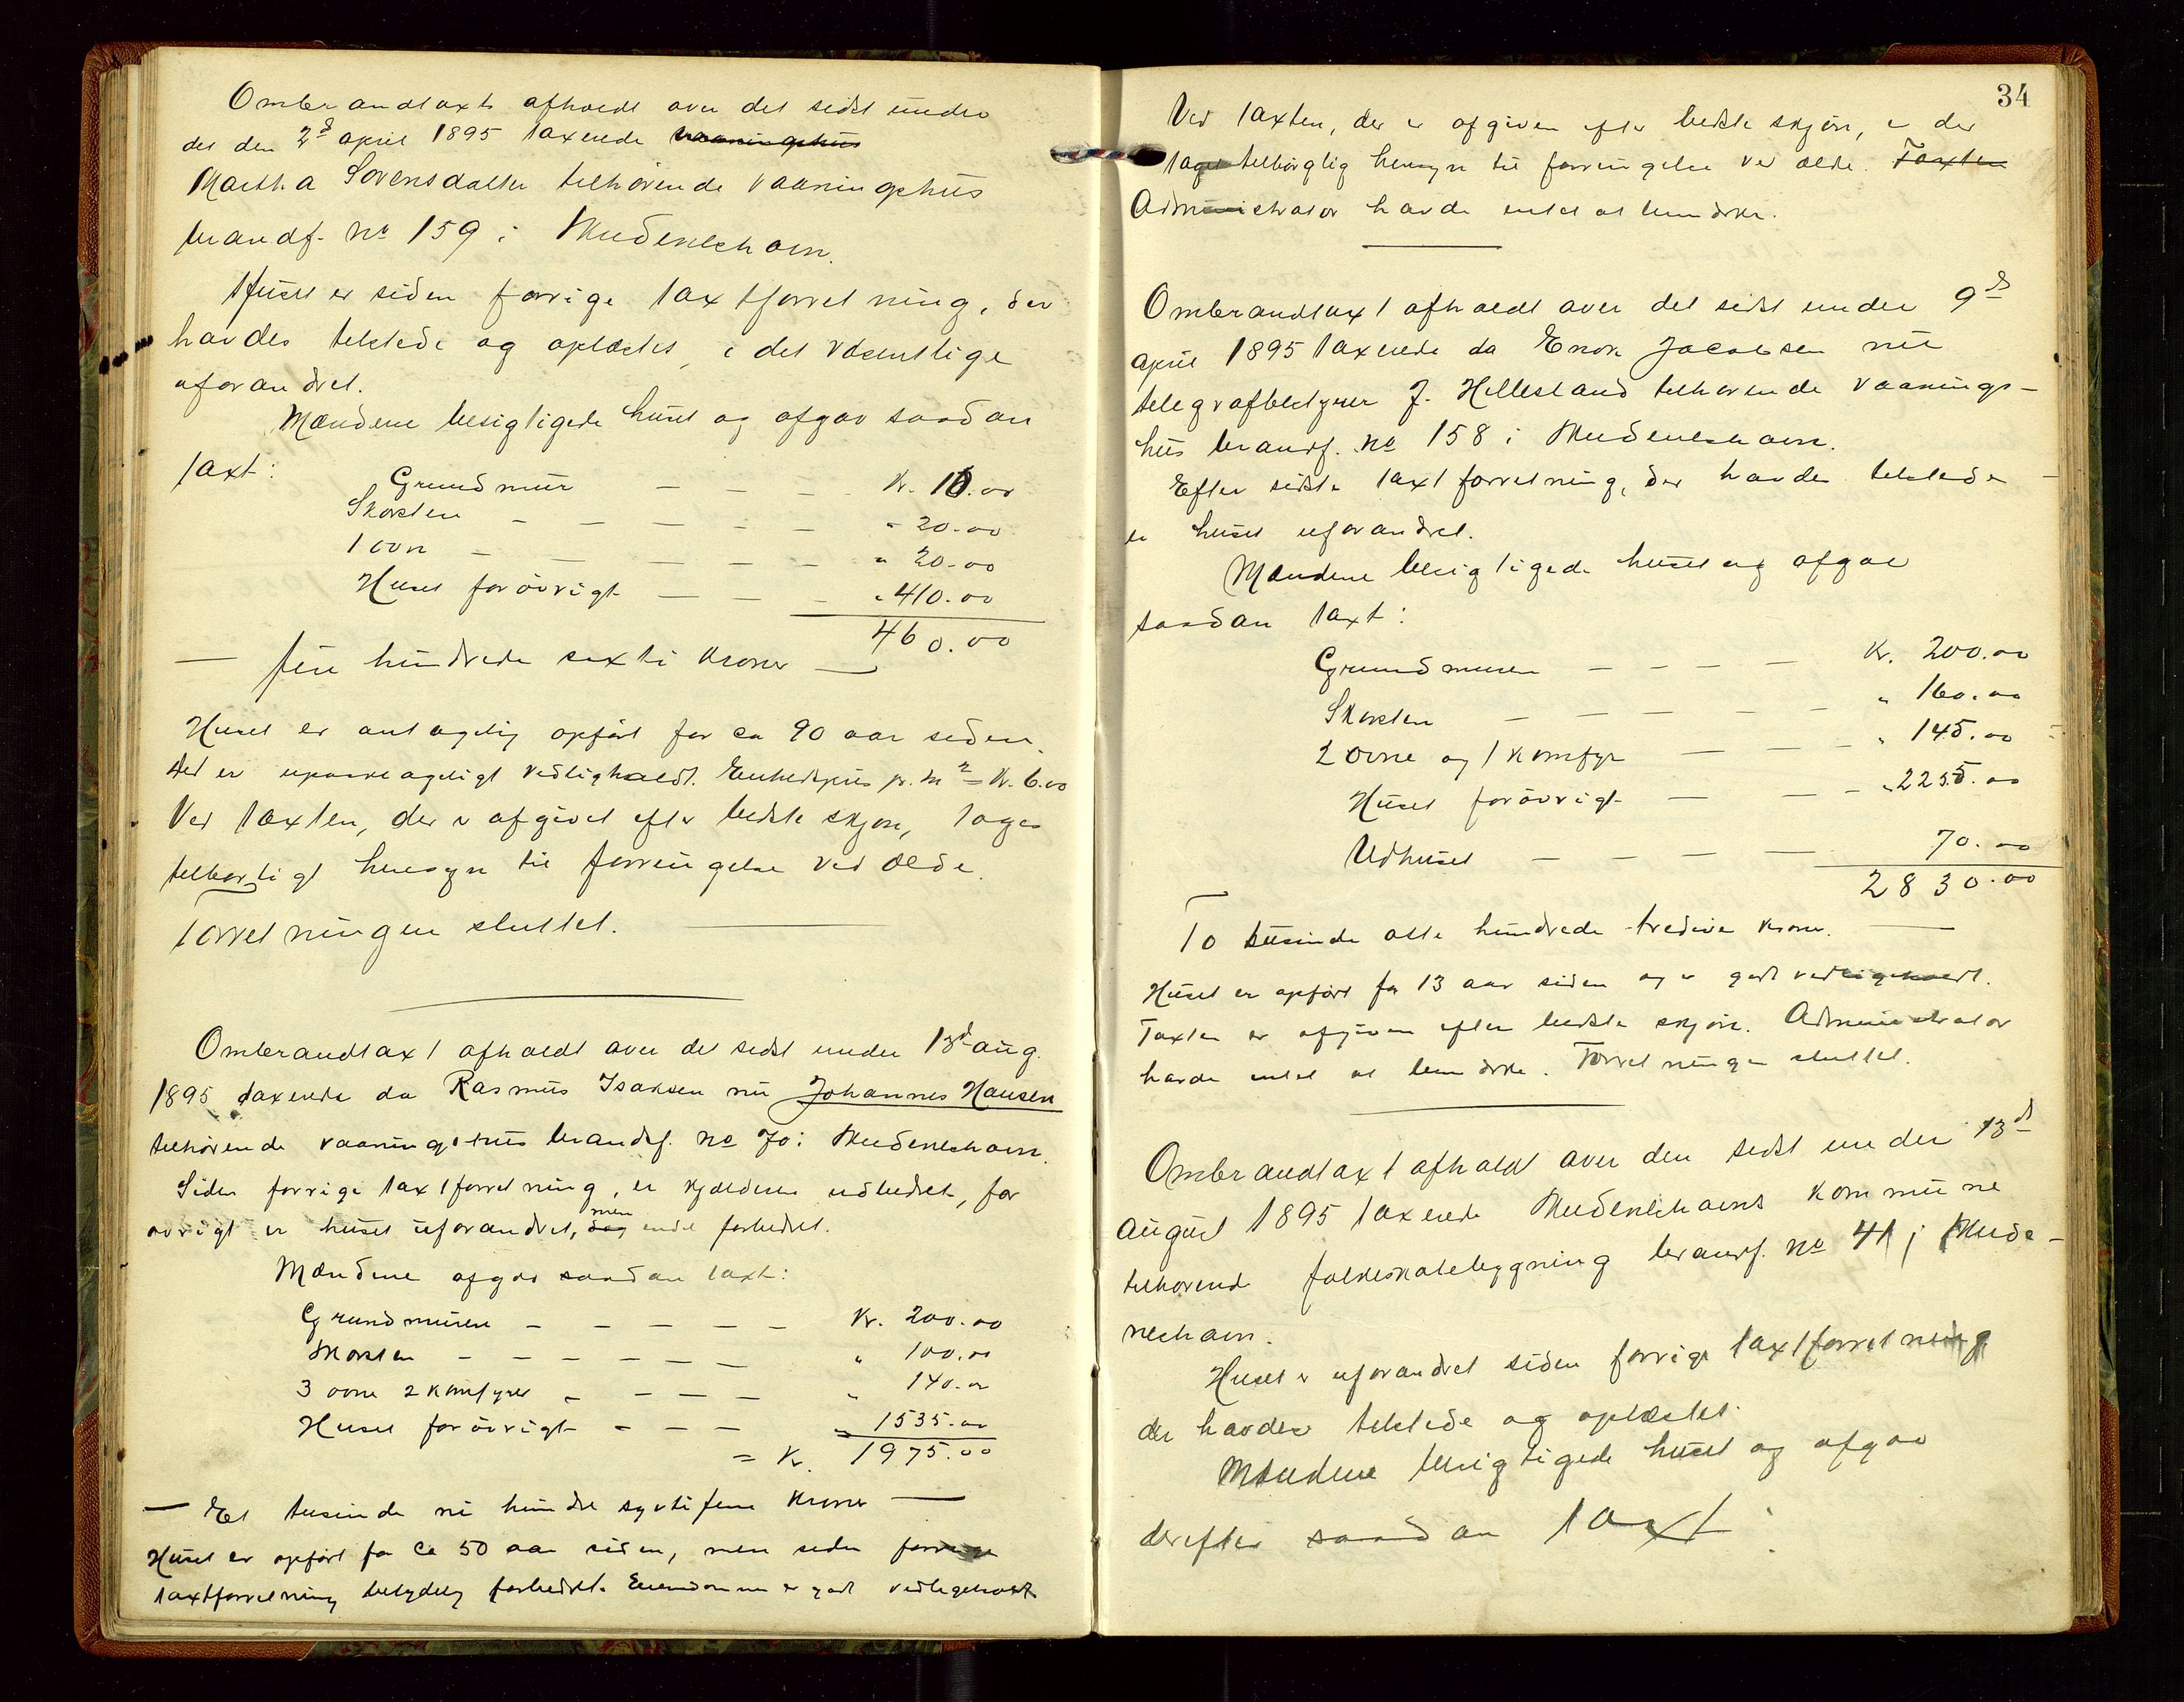 Ombrandtaxt afholdt over det sidst under
det den 2d april 1895 taxerede vaaningshus
Martha Sörensdatter tilhörende vaaningshus
brandf. No 159 i Skudeneshavn.
Huset er siden forrige taxtforretning, der
havdes tilstede og oplæstes, i det væsentlige
uforandret.
Mændene besigtigede huset og afgav saadan
taxt:
Grundmur — — — Kr. 10.00
Skorsten — — — — — " 20.00
1 ovn — — — — — " 20.00
Huset forövrigt — — — " 410.00
460.00
— fire hundrede sexti kroner —
Huset er antagelig opfört for ca 90 aar siden.
Det er upaaklageligt vedligholdt. Enhedspris pr. m2 = Kr. 6.00
Ved taxten, der er afgivet efter bedste skjön, toges
tilbörligt hensyn til forringelse ved ælde.
Forretningen sluttet.
Ombrandtaxt afholdt over det sidst under 13d aug.
1895 taxerede da Rasmus Isaksen nu Johannes Hansen
tilhörende vaaningshus brandf. No 70 i Skudeneshavn.
Siden forrige taxtforretning, er kjælderen udbedret, for
övrigt er huset uforandret, dog men endel forbedret.
Mændene afgav saadan taxt:
Grundmuren — — — — — Kr. 200.00
Skorsten — — — — — — " 100.00
3 ovne 2 komfyrer — — — — " 140.00
Huset forövrigt — — — " 1535.00
= Kr. 1975.00
— Et tusinde ni hundre sytti fem kroner —
Huset er opfört for ca 50 aar siden, men siden forrige
taxtforretning betydelig forbedret. Eiendommen er godt vedligeholdt
34
Ved taxten, der er afgiven efter bedste skjön, er der
taget tilbörglig hensyn til forringelse ved ælde. Taxten
Administrator havde intet at bemærke.
Ombrandtaxt afholdt over det sidst under 9ds
april 1895 taxerede da Enok Jacobsen nu
telegrafbestyrer J. Hillesland tilhörende vaanings-
hus brandf. No 158 i Skudeneshavn.
Efter sidste taxtforretning, der havdes tilstede
er huset uforandret.
Mændene besigtigede huset og afgav
saadan taxt:
Grundmuren — — — — Kr. 200.00
Skorsten — — — — — " 160.00
2 Ovne og 1 komfyr — — — " 145.00
Huset forövrigt — — — " 2255.00
Udhuset — — — — 70.00
2830.00
To tusinde otte hundrede tredive kroner. —
Huset er opfört for 13 aar siden og er godt vedligeholdt.
Taxten er afgiven efter bedste skjön. Administrator
havde intet at bemærke. Forretningen sluttet.
Ombrandtaxt afholdt over den sidst under 13d
august 1895 taxerede Skudeneshavns kommune
tilhörende folkeskolebygning brandf. No 41 i Skude-
neshavn.
Huset er uforandret siden forrige taxtforretning
der havdes tilstede og oplæstes.
Mændene besigtigede huset og afgav
derefter saadan taxt: